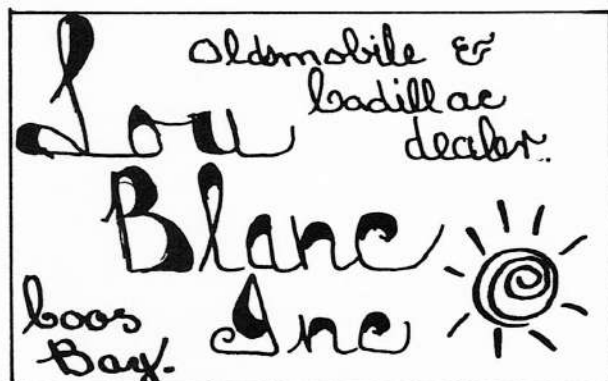 Lou
Oldsmobile &
Cadillac
dealer.
Blanc
Inc
Coos
Bay.